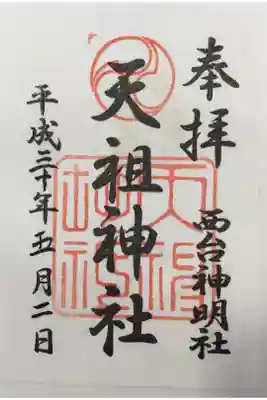 奉拝
西台神明社
天祖神社
平成三十年五月二日